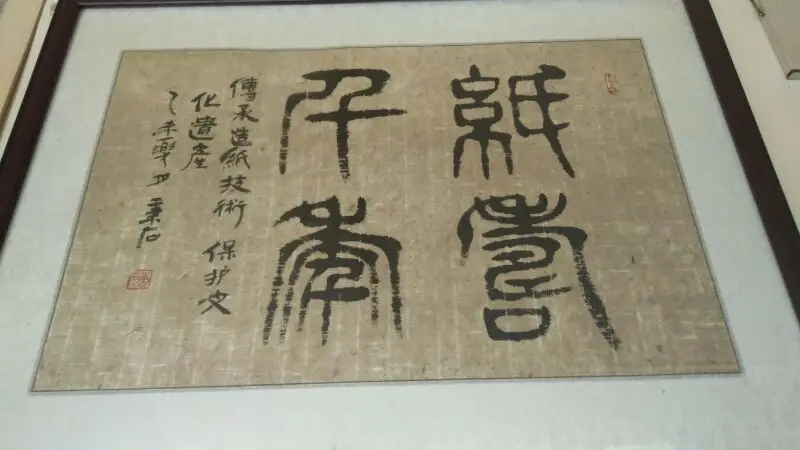 紙壽
千年
傳承造紙技術 保护文
化遺產
乙未